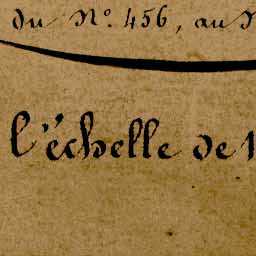 du N.º 456, au N
l'échelle de 1